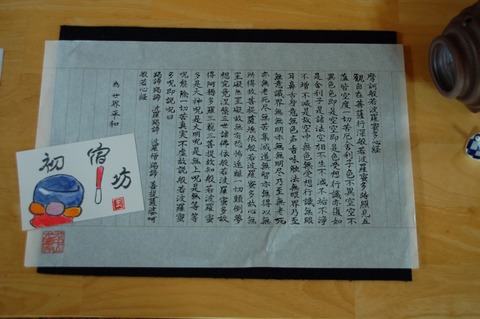 摩訶般若波羅蜜多心経
観自在菩薩行深般若波羅蜜多時照見五
蘊皆空度一切苦厄舎利子色不異空空不
異色色即是空空即是色受想行識亦復如
是舎利子是諸法空相不生不滅不垢不浄
不増不減是故空中無色無受想行識無眼
耳鼻舌身意無色声香味触法無眼界乃至
無意識界無無明亦無無明尽乃至無老死
亦無老死尽無苦集滅道無智亦無得以無
所得故菩提薩埵依般若波羅蜜多故心無
罣礙無罣礙故無有恐怖遠離一切顛倒夢
想究竟涅槃三世諸仏依般若波羅蜜多故
得阿耨多羅三藐三菩提故知般若波羅蜜
多是大神呪是大明呪是無上呪是無等等
呪能除一切苦真実不虚故説般若波羅蜜
多呪即説呪曰
羯諦羯諦 波羅羯諦 波羅僧羯諦 菩提薩婆訶
般若心経
為世界平和
初宿坊